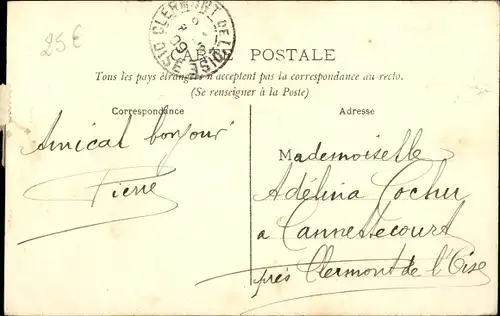 25€
CLERMONT DE L'OISE
OISE
CARTE POSTALE
Tous les pays étrangers n'acceptent pas la correspondance au recto.
(Se renseigner à la Poste)
Correspondance
Amical bonjour
Pierre
Adresse
Mademoiselle
Adélina Cochu
à Cannettecourt
près Clermont de l'Oise